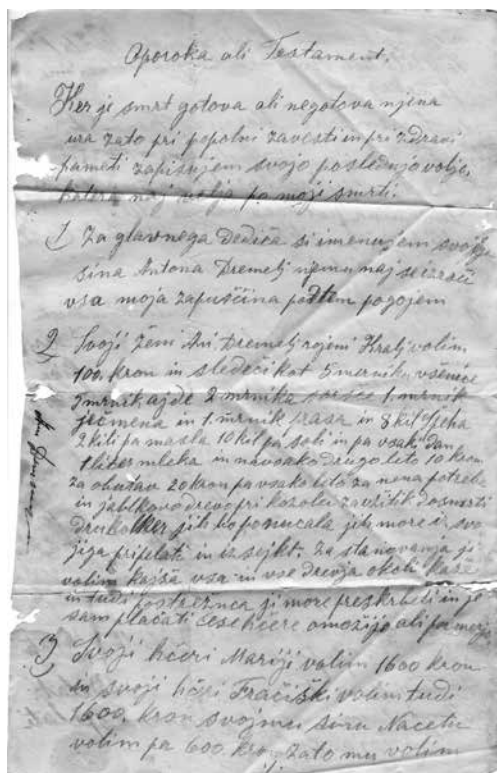 Oporoka ali Testament.
Ker je smrt gotova ali negotova njena
ura zato pri popolni zavesti in pri zdravi
pameti zapisujem svojo poslednjo voljo,
katera naj velja po moji smrti.
1) Za glavnega dediča si imenujem svojega
sina Antona Dremelj njemu naj se izroči
vsa moja zapuščina pod tem pogojem
2) Svoji ženi Ani Dremelj rojeni Kralj volim
100 kron in sledeči kot 5 mernikov všenice
mrnik ajde 2 mrnika 1. mrnik
ječmena in 1. mrnik prasa in 8 kil
2 kili pa masla 10 kil pa soli in pa vsak dan
1 liter mleka in navsako drugo leto 10 kron
za obutav 20 kron pa vsako leto za nena potrebe
in jablkovo drevo pri kozolcu za vžitik do smrti
drv kolker jih bo ponucala jih more iz svo
jiga pripelati in iz sejkt. Za stanovanja ji
volim kajšo vso in vse drevja okoli kaše
in tudi postrežnca ji more preskrbeti in jo
sam plačati če se hčere omožijo ali pa
3) Svoji hčeri Mariji volim 1600 kron
in svoji hčeri Fračiški volim tudi
1600. kron svojmu sinu Nacetu
volim pa 600 kron zato mu volim